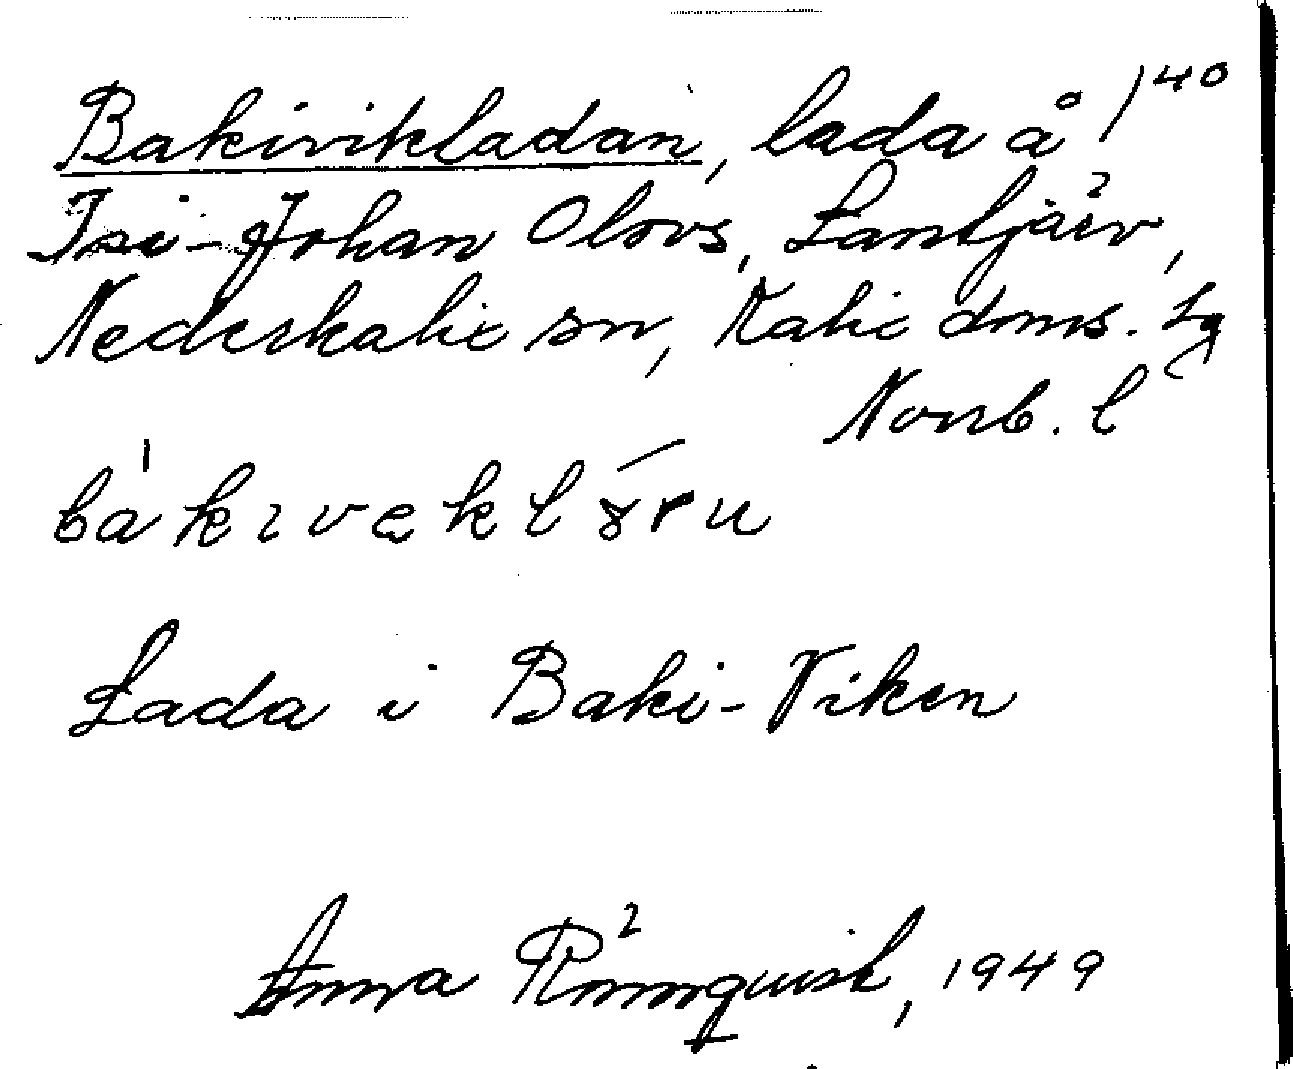 Bakivikladan, lada å 1/40
Isi-Johan Olovs, Lantjärv,
Nederkalix sn, Kalix doms. lg
Norrb. l
Lada i Baki-Viken
Anna Rönnquist, 1949